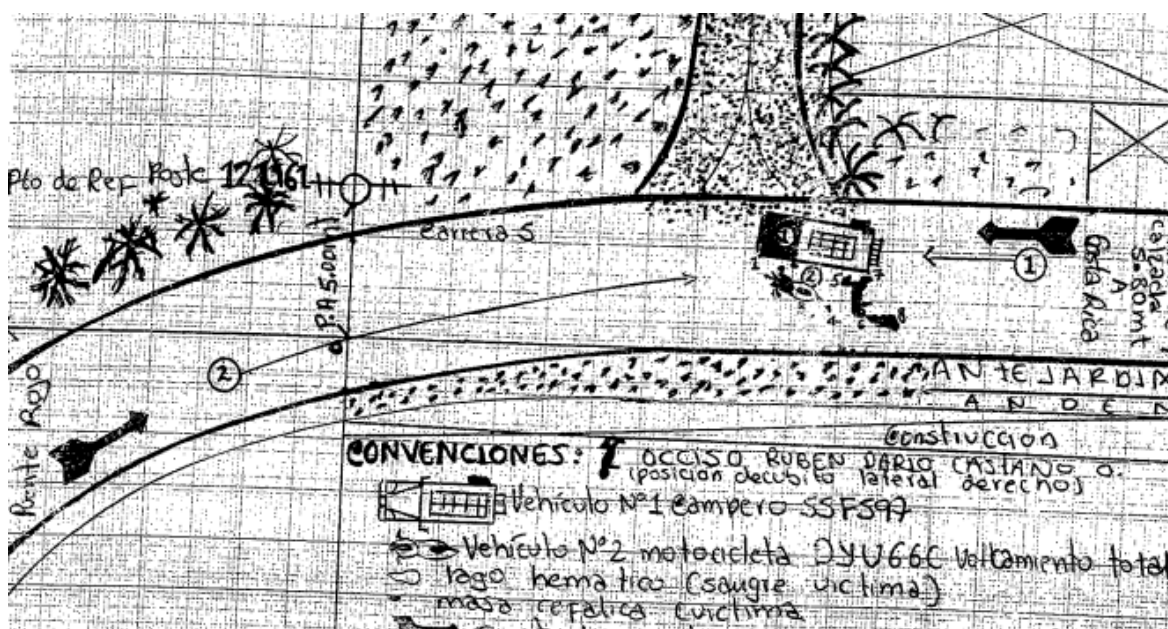 Pto de Ref Poste
Carrera 5
P.A 5.00mt
1
2
1
2
Calzada 5.80mt
A
Costa Rica
A Puente Rojo
ANTEJARDIN
ANDEN
Construccion
CONVENCIONES: OCCISO RUBEN DARIO CASTAÑO O.
(posición decubito lateral derecho)
Vehículo Nº1 Campero SSF597
Vehículo Nº2 motocicleta DYU66C Volcamiento total
lago hematico (sangre victima)
masa cefalica (victima